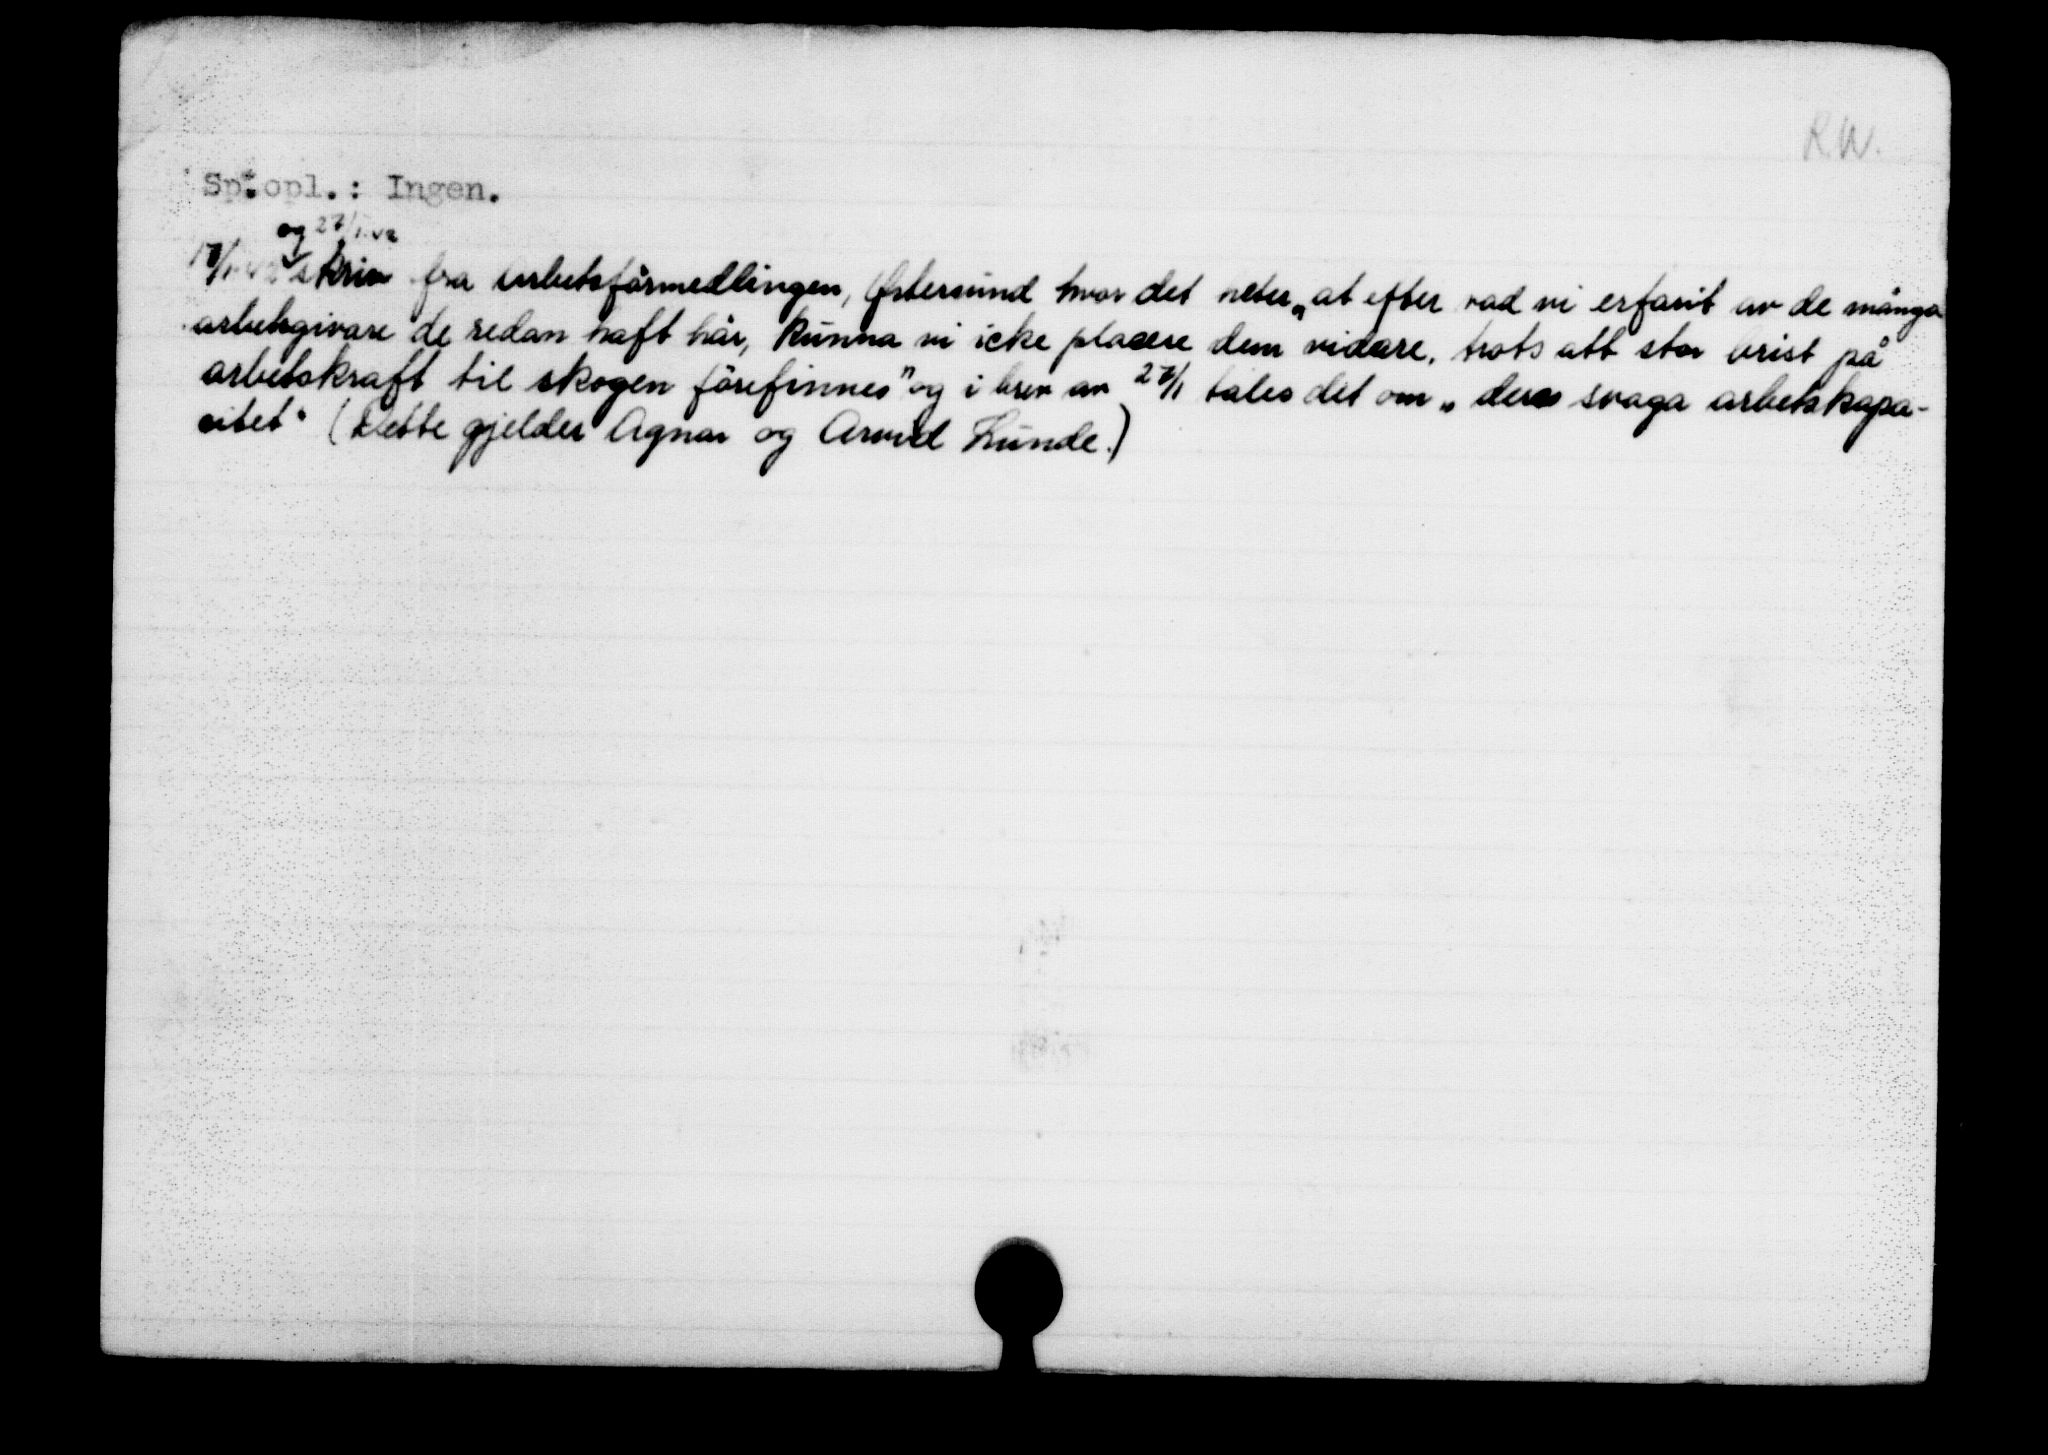 R.W.
Sp.opl.: Ingen.
og 27/1.42
17/1.42 skriv fra Arbetsförmedlingen, Østersund hvor det heter „at efter vad vi erfarit av de många
arbetsgivare de redan haft här, kunna vi icke placere dem vidare, trots att stor brist på
arbetskraft til skogen förefinnes" og i brev av 27/1 tales det om „deres svaga arbetskapa-
citet" (Dette gjelder Agnar og Arvid Lunde.)